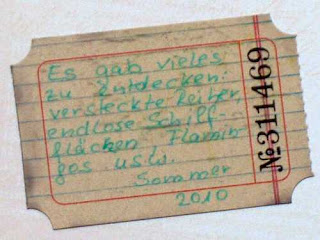 Es gab vieles
zu entdecken:
versteckte Reiter,
endlose Schilf-
flächen Flamin
gos usw.
Sommer
2010
№311469